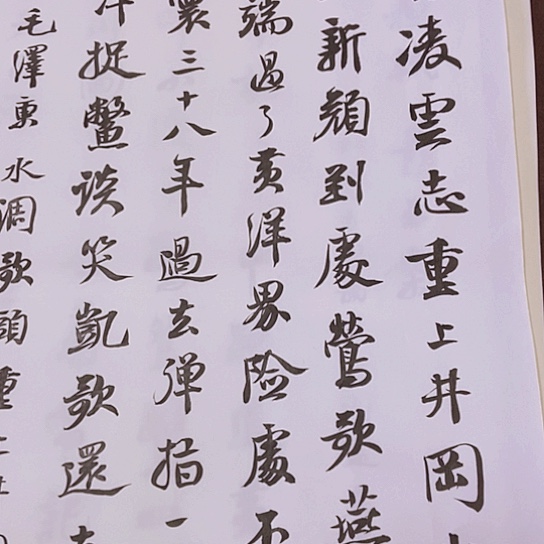 凌雲志重上井岡
新顏到處鶯歌燕
端過了黃洋界險處不
寰三十八年過去彈指一
捉鱉談笑凱歌還
毛澤東水調歌頭重上